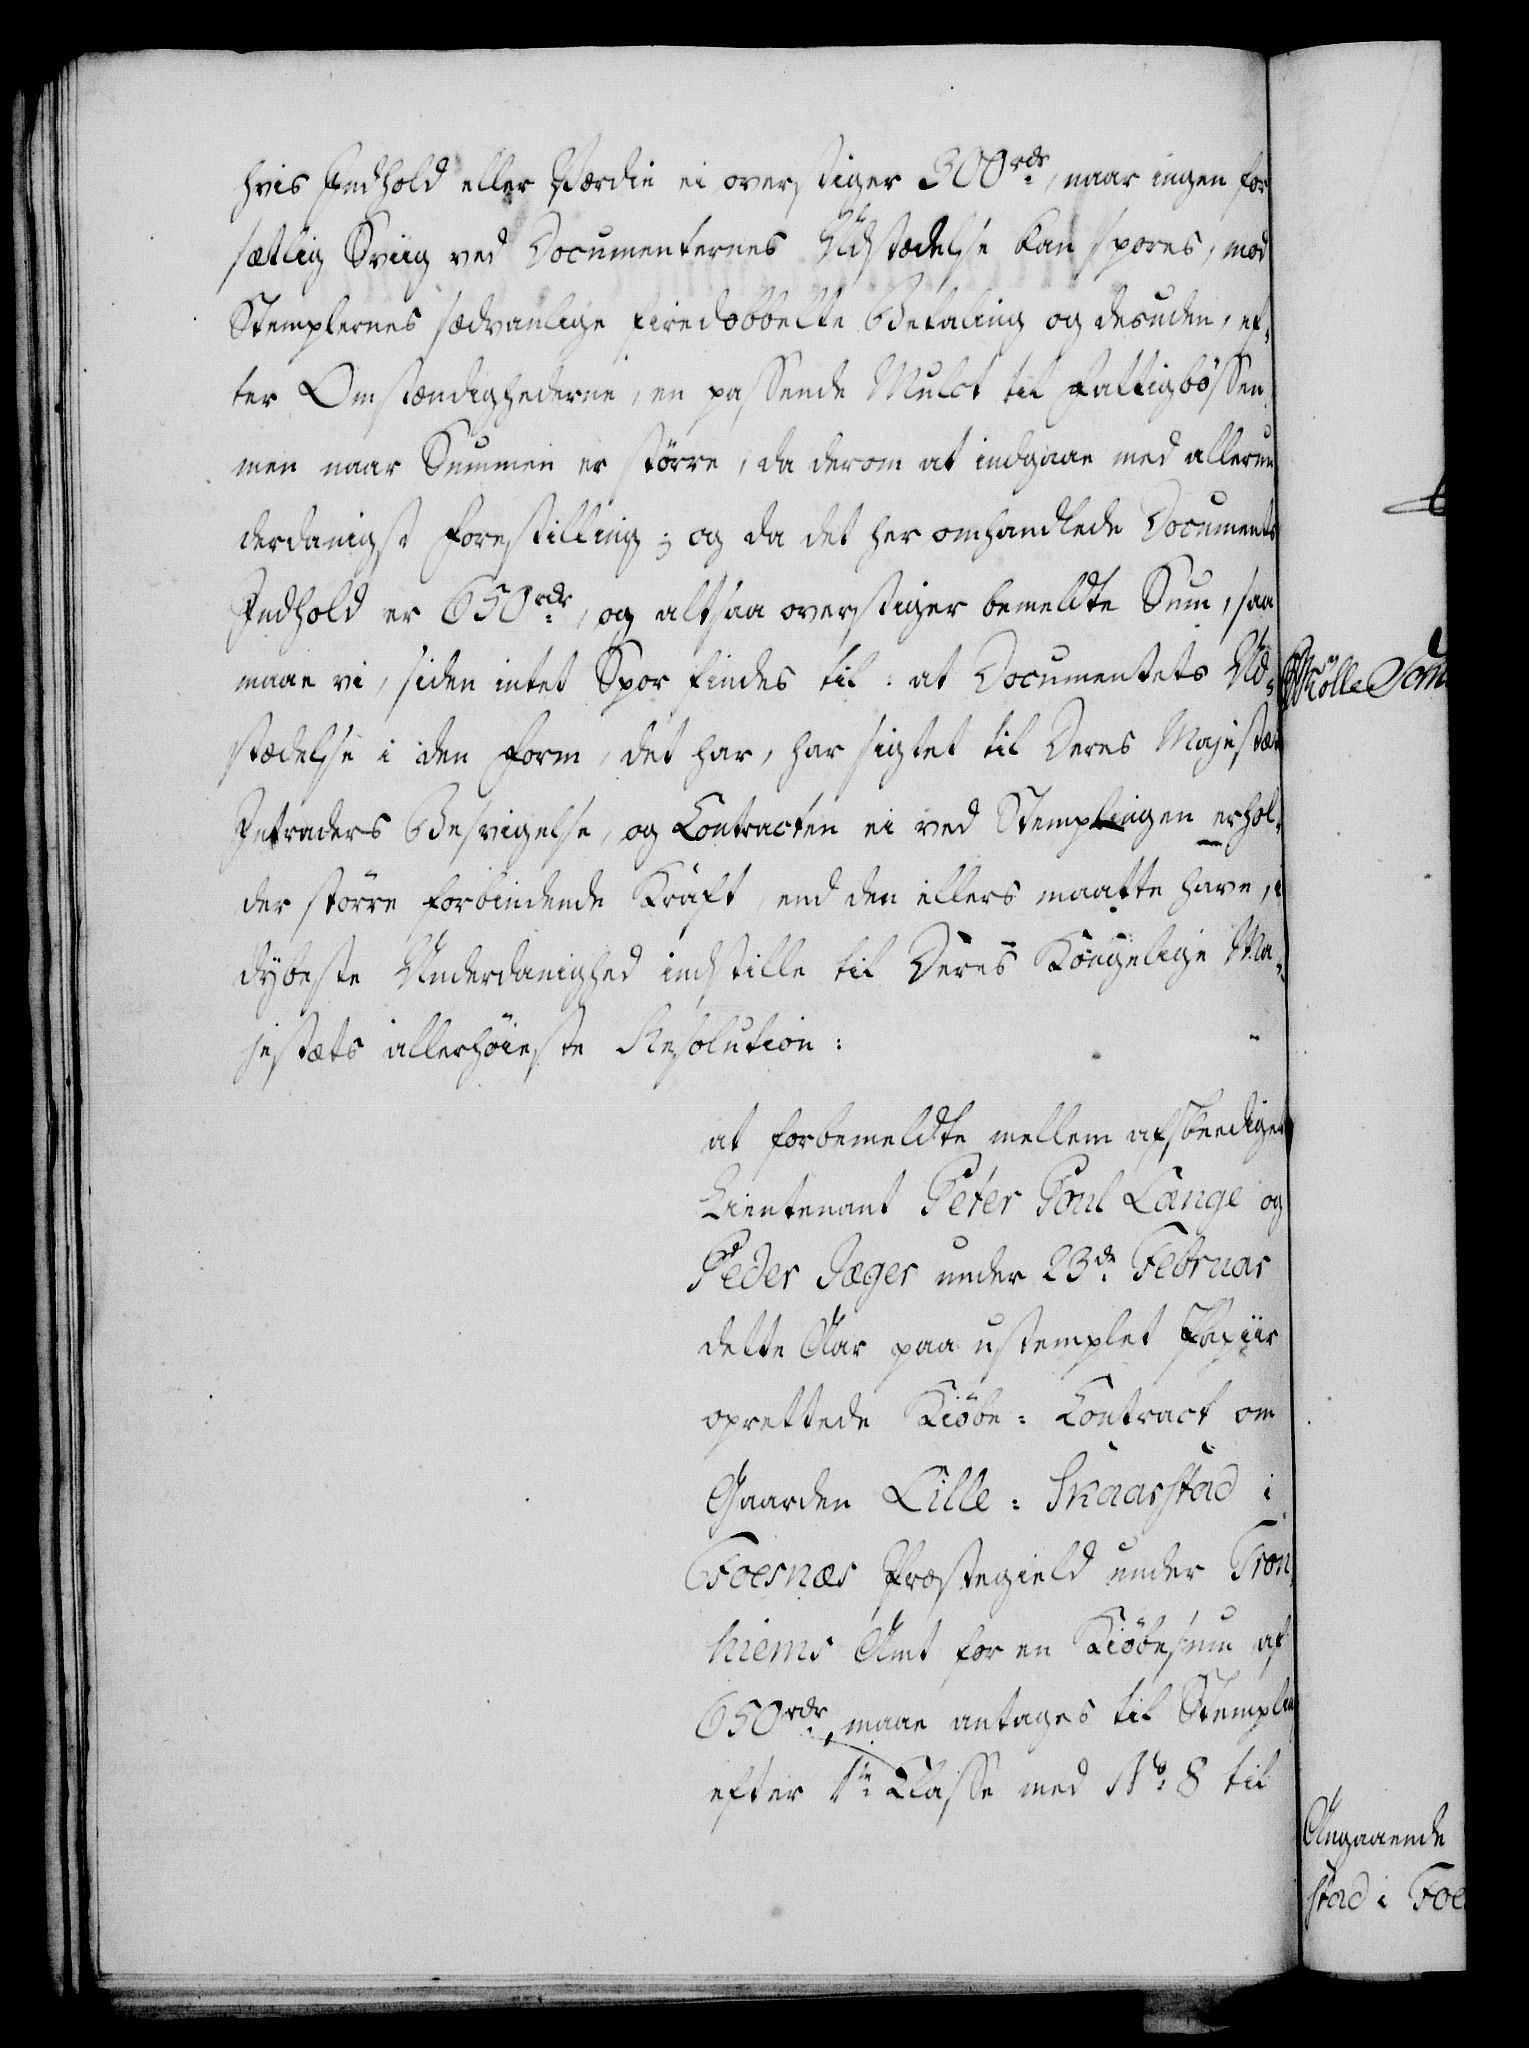 hvis Indhold eller Værdie ei overstiger 300 rdr, naar ingen for
sætlig Sviig ved Documenternes Udstædelse kan spores, mod
Stemplernes sædvanlige firedobbelte Betaling og desuden, ef-
ter Omstændighederne, en passende Mulct til Fattigbössen
men naar Summen er större, da derom at indgaae med allerun
derdanigst Forestilling; og da det her omhandlede Documents
Indhold er 650 rdr, og altsaa overstiger bemeldte Sum, saa
maae vi, siden intet Spor findes til: at Documentets Ud-
stædelse i den Form, det har, har sigtet til Deres Majestæts
Intraders Besvigelse, og Contracten ei ved Stemplingen erhol-
der större forbindende Kraft, end den ellers maatte have, i
dybeste Underdanighed indstille til Deres Kongelige Ma-
jestæts allerhöieste Resolution:
at forbemeldte mellem afskeediget
Lieutenant Peter Poul Lange og
Peder Jæger under 23de Februar
dette Aar paa ustemplet Papiir
oprettede Kiöbe: Contract om
Gaarden Lille: Skaarstad i
Foesnæs Præstegield under Tron-
hiems Amt for en Kiöbesum af
650 rdr, maae antages til Stempling
efter 1te Classe med No. 8 til
Angaaende
stad i Foe